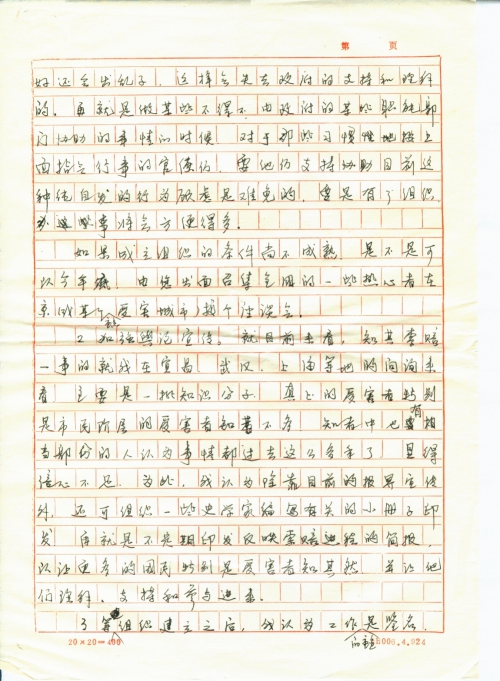 第 页
好还会出乱子。这样会失去政府的支持和理解
的。再就是做某些不得不由政府的某些职能部
门协助的事情的时候，对于那些习惯性地按上
面指令行事的官僚们，要他们支持协助目前这
种纯自发的行为顾虑是难免的，要是有了组织，
办这些事将会方便得多。
如果成立组织的条件尚不成熟，是不是可
以今年 由您出面召集全国的一些热心者在
京或某个受害城市搞个座谈会。
2 加强舆论宣传。就目前来看，知其索赔
一事的就我在宜昌、武汉、上海等地的间询来
看，主要是一批知识分子，真正的受害者特别
是市民阶层的受害者知者不多，知者中也有相
当部份的人认为事情都过去这么多年了，显得
信心不足。为此，我认为除靠目前的报界宣传
外，还可组织一些史学家编写有关的小册子印
发，再就是不是期印发反映索赔进程的简报，
以让更多的国民特别是受害者知其然，并让他
们理解、支持和参与进来。
3 等组织建立之后，我认为工作是签名
20×20=400
006.4.924